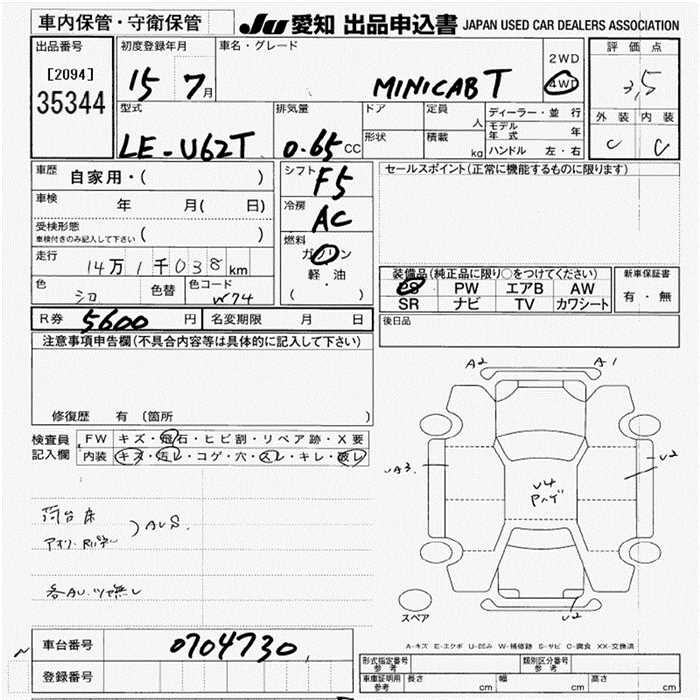 車内保管・守衛保管
JU 愛知 出品申込書 JAPAN USED CAR DEALERS ASSOCIATION
出品番号
[2094]
35344
初度登録年月
15 7月
車名・グレード
MINICAB T
2WD
4WD
評価点
3,5
外装 内装
C C
型式
LE-U62T
排気量
0.65 CC
ドア
形状
定員
人
積載
kg
ディーラー・並行
モデル年式 年
ハンドル 左・右
車歴
自家用・( )
車検
年 月( 日)
受検形態
車検付きのみ記入して下さい ( )
走行
14万1千038km
色
シロ
色替
色コード
W74
シフト
F5
冷房
AC
燃料
ガソリン
軽・油
( ・ )
セールスポイント(正常に機能するものに限ります)
装備品(純正品に限り○をつけてください)
PS PW エアB AW
SR ナビ TV カワシート
新車保証書
有・無
後日品
R券 5600 円 名変期限 月 日
注意事項申告欄(不具合内容等は具体的に記入して下さい)
修復歴 有 (箇所 )
検査員記入欄
FW キズ・飛石・ヒビ割・リペア跡・X要
内装 キズ・汚レ・コゲ・穴・スレ・キレ・破レ
荷台床
AUS.
各AU.ツヤ無し
A2 A1
UA3
U2
U4
U2
スペア
A-キズ E-エクボ U-凹み W-補修跡 S-サビ C-腐食 XX-交換済
車台番号 0704730
登録番号
形式指定番号 参考
類別区分番号 参考
車庫証明用 参考 長さ cm 幅 cm 高さ cm